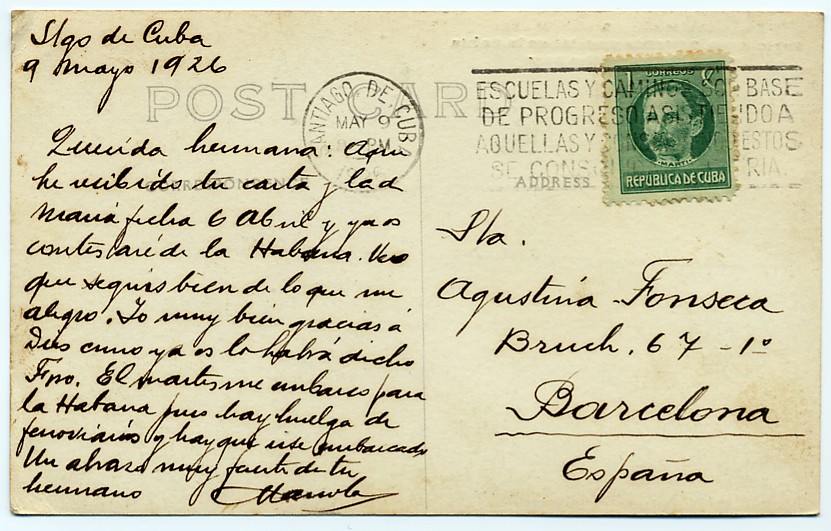 Stgo de Cuba
9 Mayo 1926
POST CARD
SANTIAGO DE CUBA
MAY 9
PM
ESCUELAS Y CAMINOS SON BASE
DE PROGRESO ASISTIENDO A
AQUELLAS Y
SE
CORREOS
MARTI
REPUBLICA DE CUBA
CORRESPONDENCE
ADDRESS
Querida hermana: Aqui
he recibido tu carta y la d
Maria fecha 6 Abril y ya os
contestaré de la Habana. Veo
que seguis bien de lo que me
alegro. Yo muy bien gracias á
Dios como ya os lo habrá dicho
Fpo. El martes me embarco para
la Habana pues hay huelga de
ferroviarios y hay que irse embarcado
Un abrazo muy fuerte de tu
hermano Manolo
Sta.
Agustina Fonseca
Bruch, 67-1º
Barcelona
España